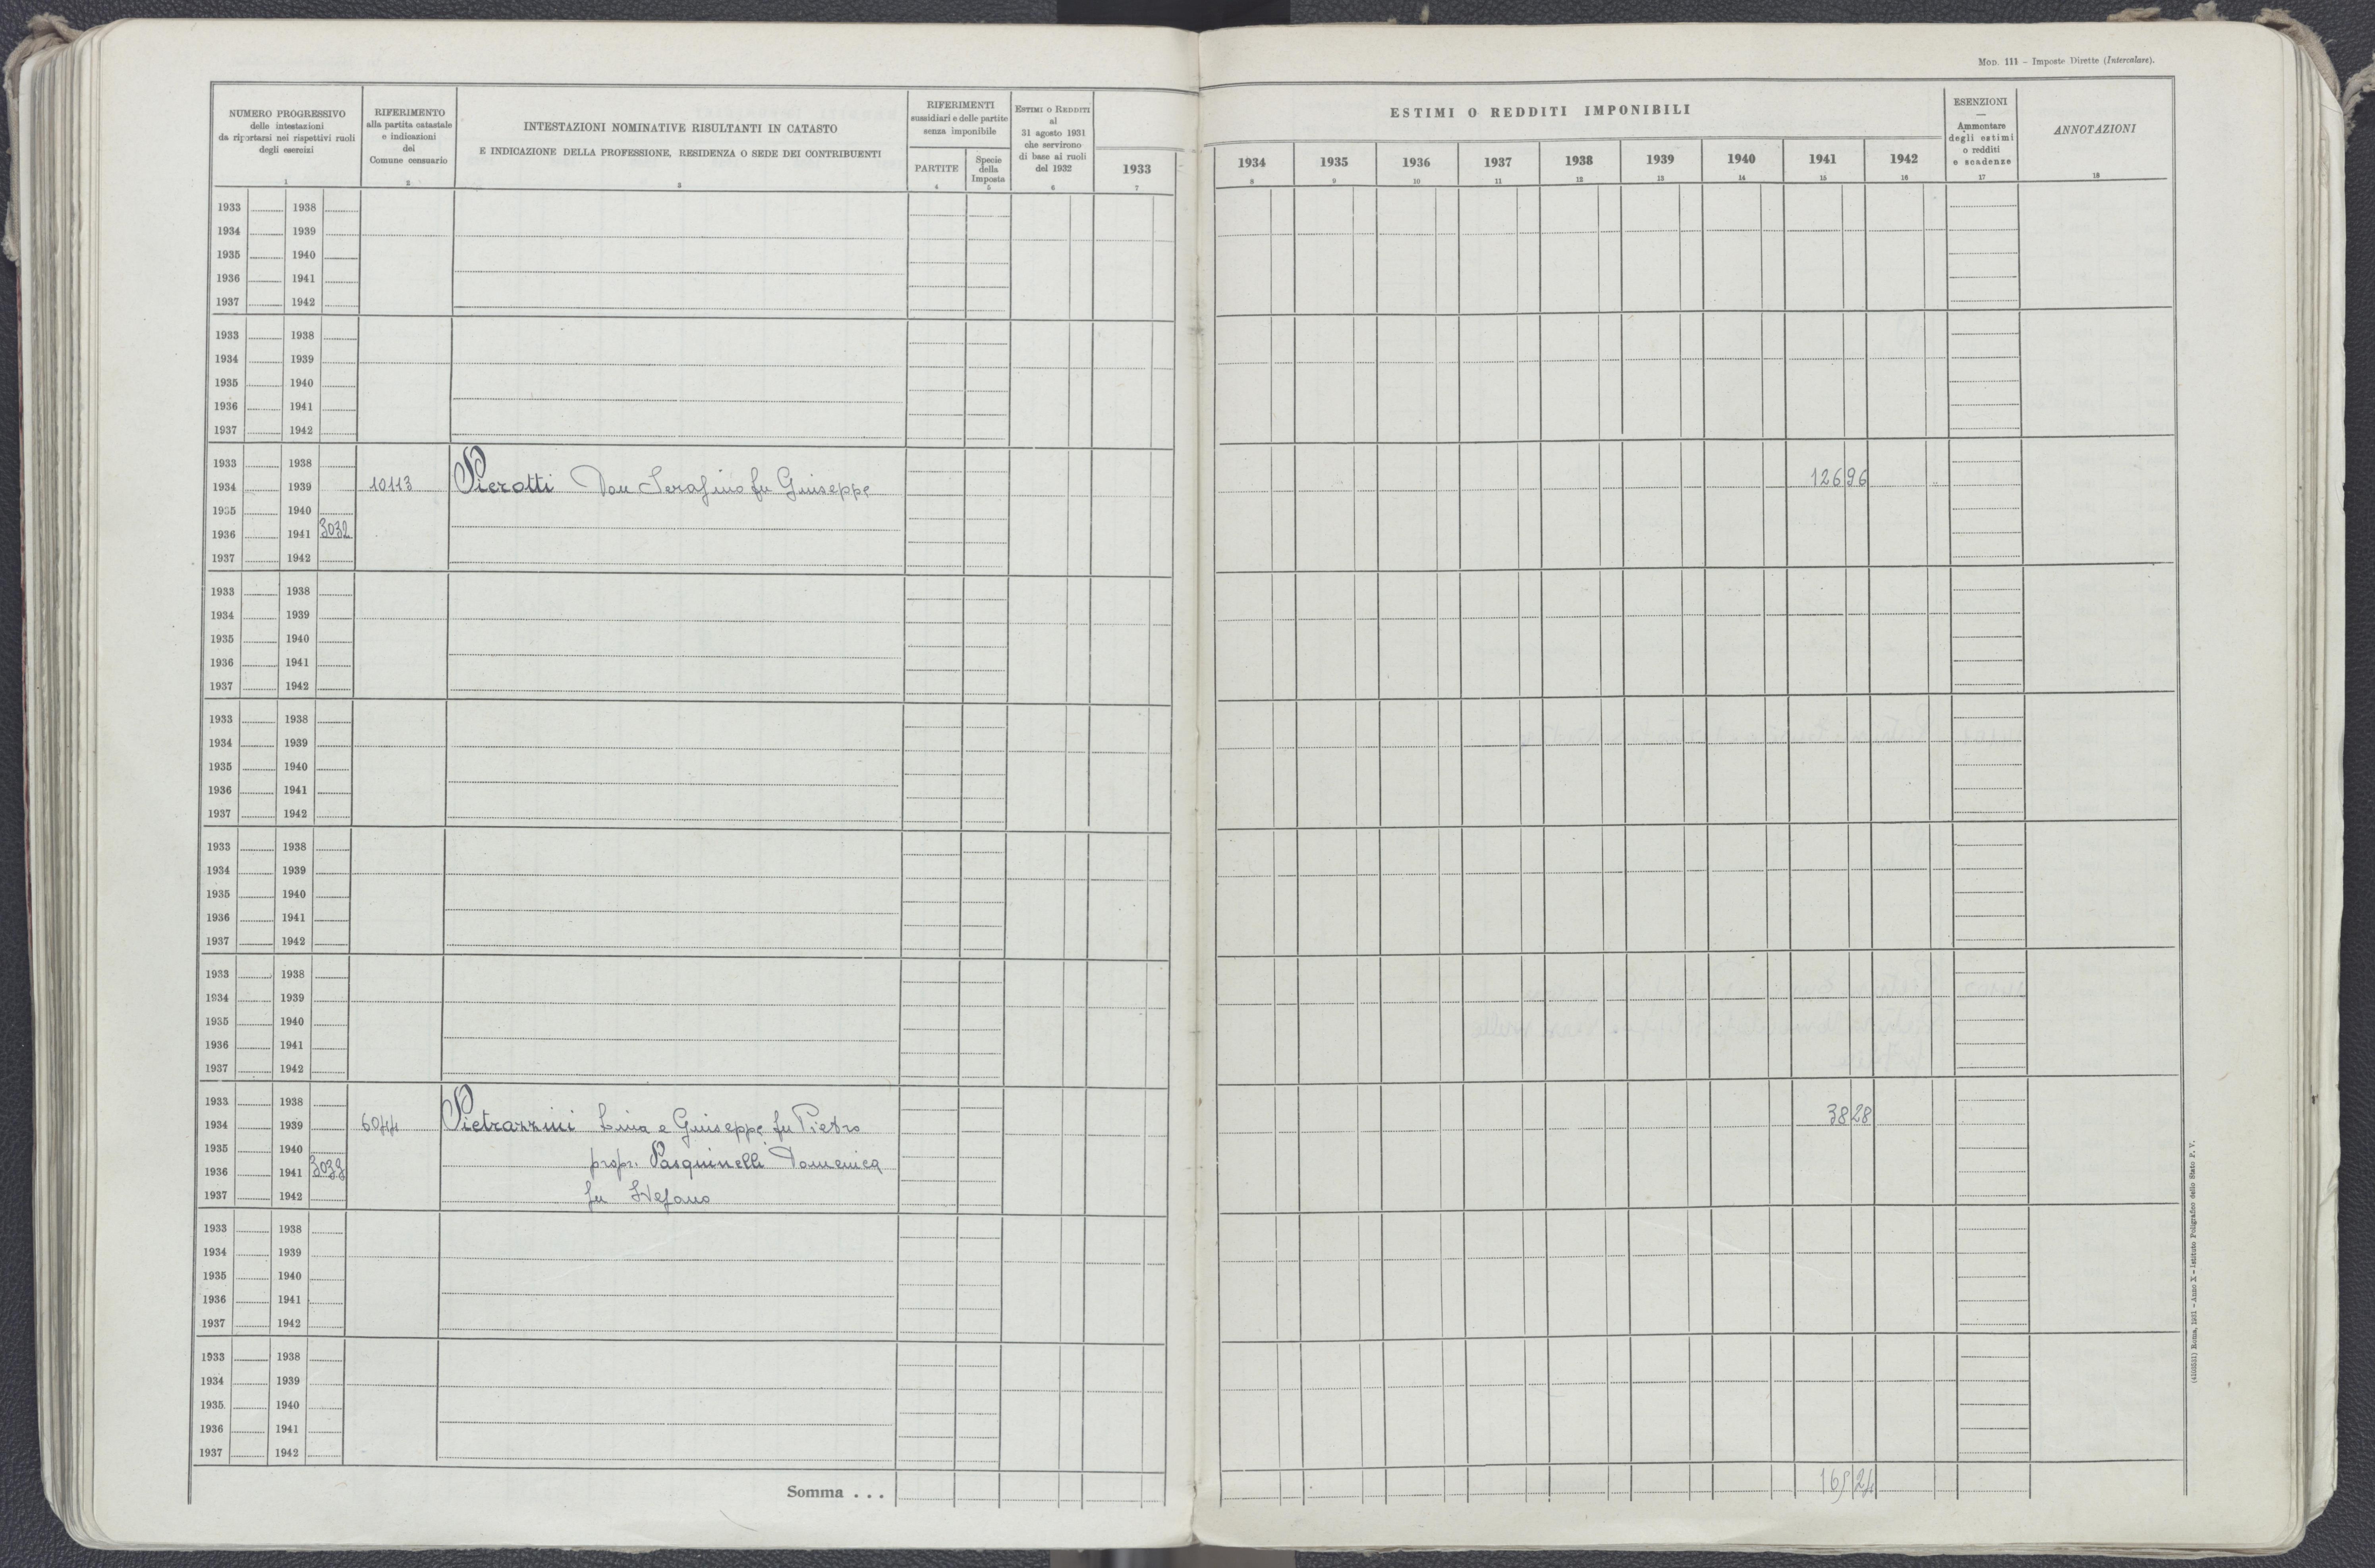 Mod. 111 – Imposte Dirette (Intercalare).
NUMERO PROGRESSIVO
delle intestazioni
da riportarsi nei rispettivi ruoli
degli esercizi
1
RIFERIMENTO
alla partita catastale
e indicazioni
del
Comune censuario
2
INTESTAZIONI NOMINATIVE RISULTANTI IN CATASTO
E INDICAZIONE DELLA PROFESSIONE, RESIDENZA O SEDE DEI CONTRIBUENTI
3
RIFERIMENTI
sussidiari e delle partite
senza imponibile
PARTITE
4
Specie
della
Imposta
5
ESTIMI O REDDITI
al
31 agosto 1931
che servirono
di base ai ruoli
del 1932
6
1933
7
ESTIMI O REDDITI IMPONIBILI
1934 1935 1936 1937 1938 1939 1940 1941 1942
8 9 10 11 12 13 14 15 16
ESENZIONI
—
Ammontare
degli estimi
o redditi
e scadenze
17
ANNOTAZIONI
18
1933 1938
1934 1939
1935 1940
1936 1941
1937 1942
1933 1938
1934 1939
1935 1940
1936 1941
1937 1942
1933 1938
1934 1939 10113 Pierotti Don Serafino fu Giuseppe 126 96
1935 1940
1936 1941 3032
1937 1942
1933 1938
1934 1939
1935 1940
1936 1941
1937 1942
1933 1938
1934 1939
1935 1940
1936 1941
1937 1942
1933 1938
1934 1939
1935 1940
1936 1941
1937 1942
1933 1938
1934 1939
1935 1940
1936 1941
1937 1942
1933 1938
1934 1939 6044 Pietrazzini Lina e Giuseppe fu Pietro 38 28
1935 1940
1936 1941 3033 propr. Pasquinelli Domenica
1937 1942 fu Stefano
1933 1938
1934 1939
1935 1940
1936 1941
1937 1942
1933 1938
1934 1939
1935 1940
1936 1941
1937 1942
Somma . . . 165 24
Roma, 1931 – Anno X – Istituto Poligrafico dello Stato P. V.